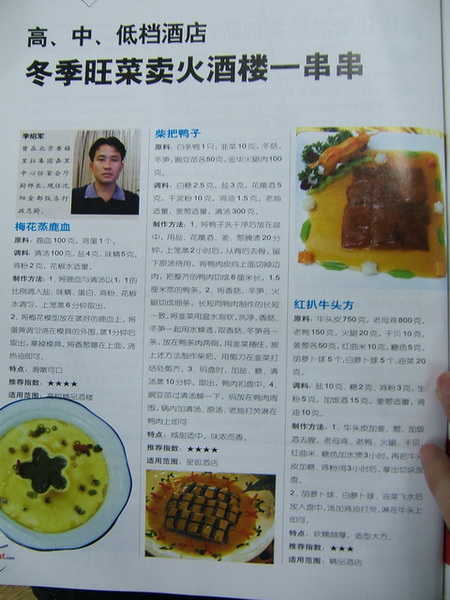 高、中、低档酒店
冬季旺菜卖火酒楼一串串
李绍军
曾在北京香格
里拉集团嘉里
中心任宴会厅
厨师长，现任沈
阳金都饭店行
政总厨。
梅花蒸鹿血
原料：鹿血100克，鸡蛋1个。
调料：清汤100克，盐4克，味精5克，
鸡粉2克，花椒水适量。
制作方法：1、将鹿血与清汤以1：1的
比例调入盐、味精、蛋白、鸡粉、花椒
水调匀，上笼蒸6分钟取出。
2、将梅花模型放在蒸好的鹿血上，将
蛋黄调匀浇在模具的外围，蒸1分钟后
取出，拿掉模具，将香葱撒在上面，浇
热油即可。
特点：滑嫩可口
推荐指数：★★★★
适用范围：高档精品酒楼
柴把鸭子
原料：白条鸭1只，韭菜10克，冬菇、
冬笋、豌豆苗各50克，金华火腿肉100
克。
调料：白糖2.5克，盐3克，花雕酒5
克，干淀粉10克，鸡油1.5克，老抽
适量，姜葱适量，清汤300克。
制作方法：1、将鸭子洗干净后放在盆
中，用盐、花雕酒、姜、葱腌渍20分
钟，上笼蒸2小时后，从背后去骨，留
下原汤待用，将鸭肉皮向上面切掉边
肉，把整齐的鸭肉切成6厘米长，1.5
厘米宽的鸭条。2、将香菇、冬笋、火
腿切成细条，长短同鸭肉制作的长短
一致，将韭菜用温水泡软，洗净，香菇、
冬笋一起用水焯透，取香菇、冬笋各一
条，放在鸭条肉两侧，用韭菜捆住，按
上述方法制作柴把，用剪刀在韭菜打
结处剪齐。3、码盘时，加盐、糖、清
汤蒸10分钟，取出，鸭肉扣盘中。4、
豌豆苗过清汤焯一下，码放在鸭肉周
围，锅内加清汤、原汤、老抽打芡淋在
鸭肉上即可
特点：咸甜适中，味浓而香。
推荐指数：★★★★
适用范围：星级酒店
红扒牛头方
原料：牛头皮750克，老母鸡800克，
老鸭150克，火腿20克，干贝10克，
姜葱各50克，红曲米10克，糖色5克，
胡萝卜球5个，白萝卜球5个，油菜20
克。
调料：盐10克，糖2克，鸡粉3克，生
粉5克，加饭酒15克，姜葱适量，鸡
油10克。
制作方法：1、牛头皮加姜、葱、加饭
酒去腥，老母鸡、老鸭、火腿、干贝、
红曲米、糖色加水煲3小时，再把牛头
皮加糖、鸡粉焖3小时后，拿出切块放
盘。
2、胡萝卜球、白萝卜球、油菜飞水后
放入盘中，汤加鸡油打芡，淋在牛头上
即可。
特点：软糯醇厚，造型大方。
推荐指数：★★★★
适用范围：精品酒店